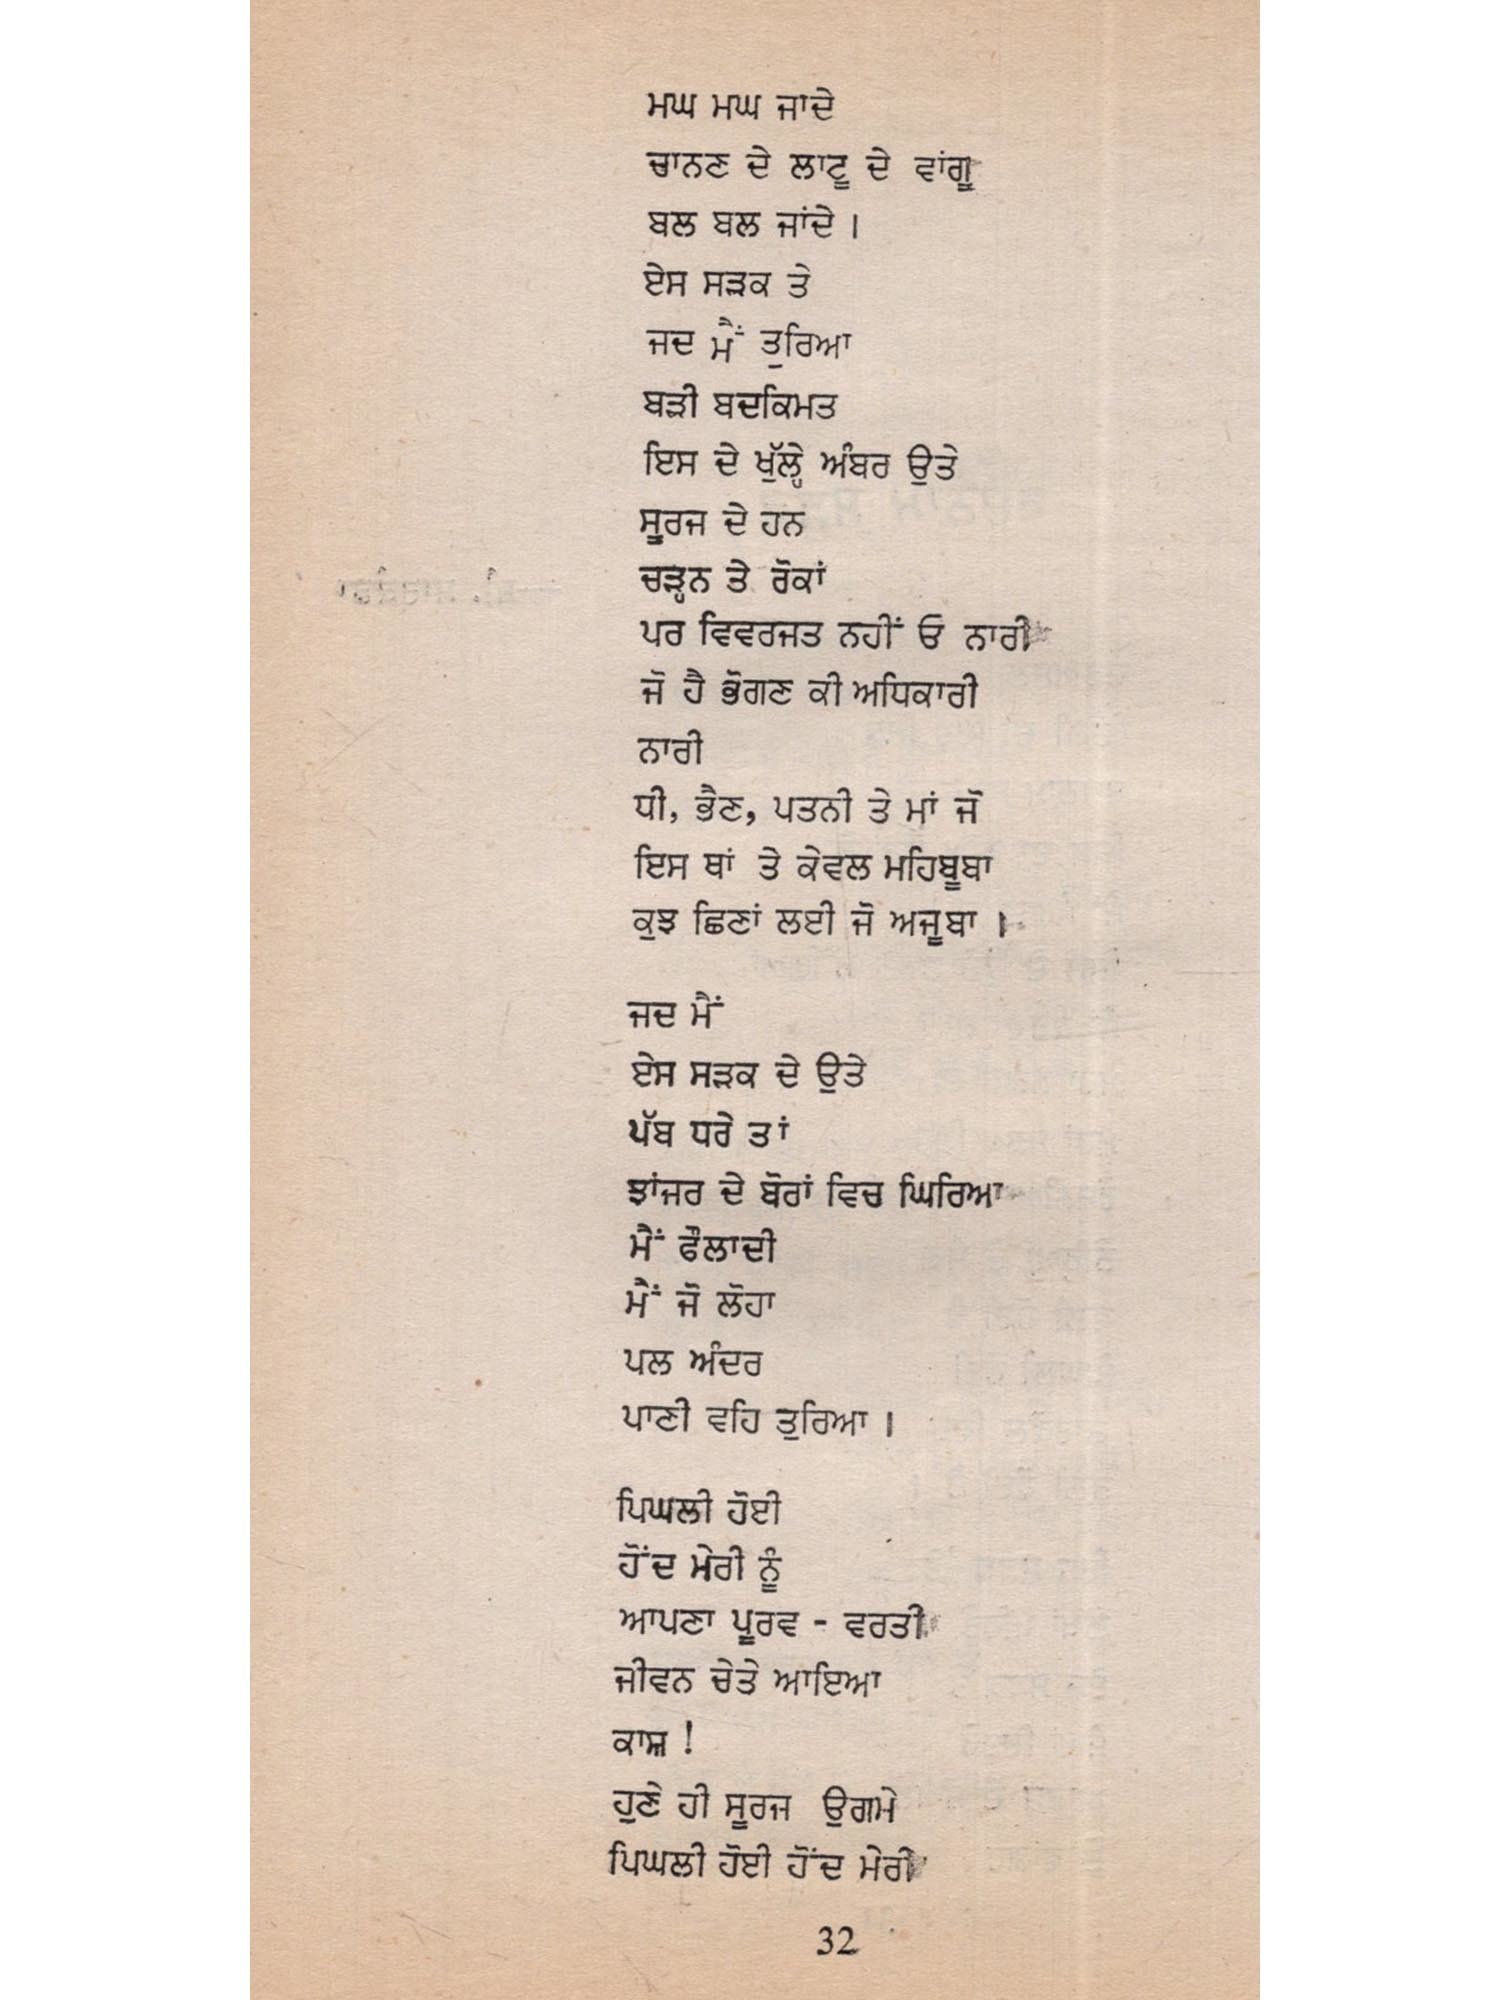 ਮਘ ਮਘ ਜਾਦੇ
ਚਾਨਣ ਦੇ ਲਾਟੂ ਦੇ ਵਾਂਗੂ
ਬਲ ਬਲ ਜਾਂਦੇ ।
ਏਸ ਸੜਕ ਤੇ
ਜਦ ਮੈਂ ਤੁਰਿਆ
ਬੜੀ ਬਦਕਿਮਤ
ਇਸ ਦੇ ਖੁੱਲ੍ਹੇ ਅੰਬਰ ਉਤੇ
ਸੂਰਜ ਦੇ ਹਨ
ਚੜ੍ਹਨ ਤੇ ਰੋਕਾਂ
ਪਰ ਵਿਵਰਜਤ ਨਹੀਂ ਓ ਨਾਰੀ
ਜੋ ਹੈ ਭੋਗਣ ਕੀ ਅਧਿਕਾਰੀ
ਨਾਰੀ
ਧੀ, ਭੈਣ, ਪਤਨੀ ਤੇ ਮਾਂ ਜੋ
ਇਸ ਥਾਂ ਤੇ ਕੇਵਲ ਮਹਿਬੂਬਾ
ਕੁਝ ਛਿਣਾਂ ਲਈ ਜੋ ਅਜੂਬਾ ।
ਜਦ ਮੈਂ
ਏਸ ਸੜਕ ਦੇ ਉਤੇ
ਪੱਬ ਧਰੇ ਤਾਂ
ਝਾਂਜਰ ਦੇ ਬੋਰਾਂ ਵਿਚ ਘਿਰਿਆ
ਮੈਂ ਫੌਲਾਦੀ
ਮੈਂ ਜੋ ਲੋਹਾ
ਪਲ ਅੰਦਰ
ਪਾਣੀ ਵਹਿ ਤੁਰਿਆ ।
ਪਿਘਲੀ ਹੋਈ
ਹੋਂਦ ਮੇਰੀ ਨੂੰ
ਆਪਣਾ ਪੂਰਵ - ਵਰਤੀ
ਜੀਵਨ ਚੇਤੇ ਆਇਆ
ਕਾਸ਼ !
ਹੁਣੇ ਹੀ ਸੂਰਜ ਉਗਮੇ
ਪਿਘਲੀ ਹੋਈ ਹੋਂਦ ਮੇਰੀ
32